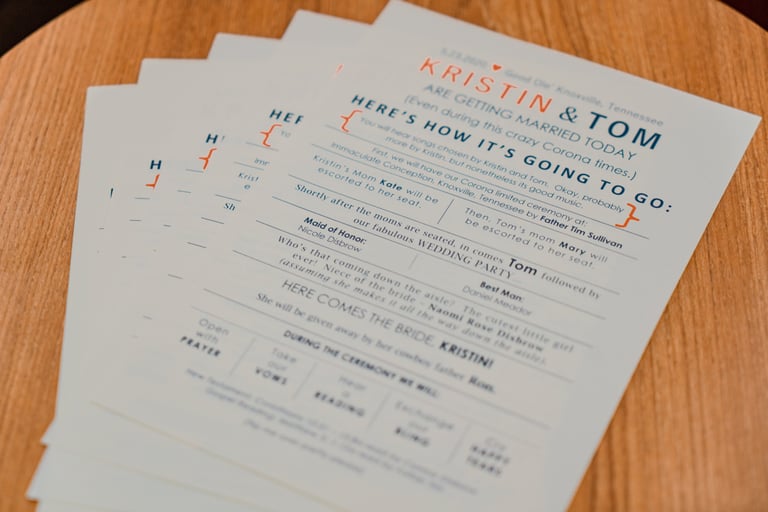 5.23.2020 ♥ Good Ole' Knoxville, Tennessee
KRISTIN & TOM
ARE GETTING MARRIED TODAY
(Even during this crazy Corona times.)
HERE'S HOW IT'S GOING TO GO:
{ You will hear songs chosen by Kristin and Tom. Okay, probably
more by Kristin, but nonetheless its good music. }
First, we will have our Corona limited ceremony at:
Immaculate Conception, Knoxville, Tennessee by Father Tim Sullivan
Kristin's Mom Kate will be
escorted to her seat.
Then, Tom's mom Mary will
be escorted to her seat.
Shortly after the moms are seated, in comes Tom followed by
our fabulous WEDDING PARTY
Maid of Honor:
Nicole Disbrow
Best Man:
Daniel Meador
Who's that coming down the aisle? The cutest little girl
ever! Niece of the bride - Naomi Rose Disbrow
(assuming she makes it all the way down the aisle).
HERE COMES THE BRIDE, KRISTIN!
She will be given away by her cowboy father Ron.
DURING THE CEREMONY WE WILL:
Open
with
PRAYER
Take
our
VOWS
Hear
a
READING
Exchange
our
RING
Cry
HAPPY
TEARS
HER
{
H
{
H